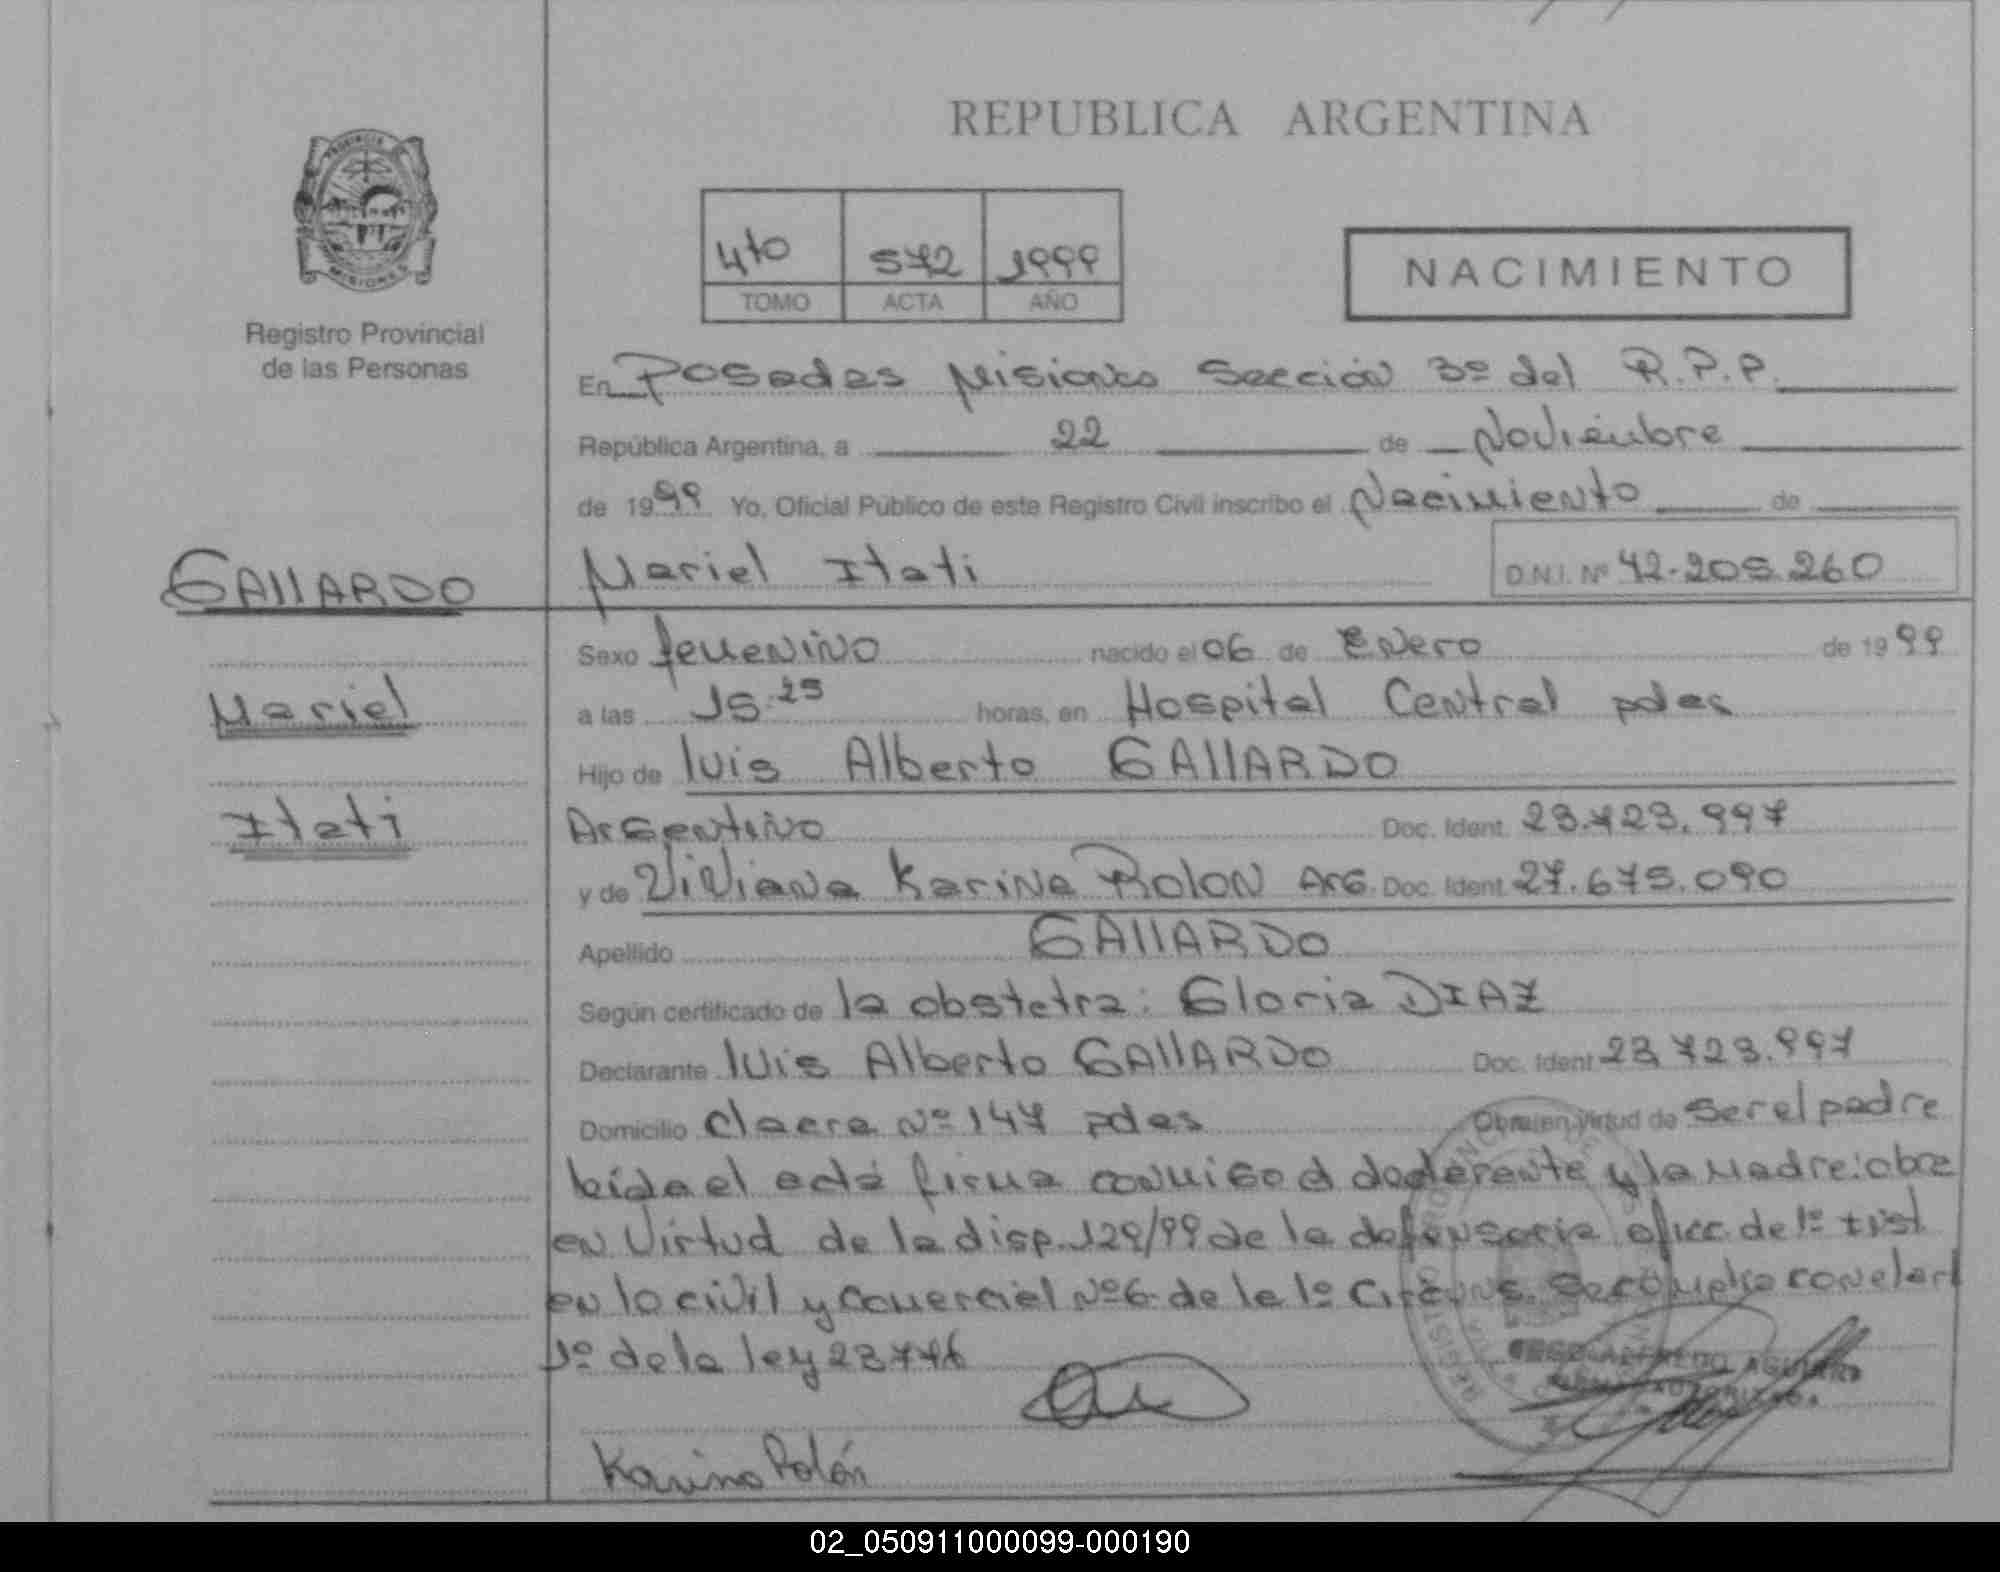 REPUBLICA ARGENTINA
PROVINCIA
MISIONES
Registro Provincial
de las Personas
4to 572 1999
TOMO ACTA AÑO
NACIMIENTO
En Posadas Misiones Sección 3º del R.P.P.
República Argentina, a 22 de Noviembre
de 1999 Yo, Oficial Público de este Registro Civil inscribo el Nacimiento de
GALLARDO
Mariel Itati D.N.I. Nº 42.205.260
Sexo femenino nacido el 06 de Enero de 1999
Mariel
a las 15:25 horas, en Hospital Central pdas
Hijo de luis Alberto GALLARDO
Itati
Argentino Doc. Ident. 23.723.997
y de Viviana Karina Rolon Arg. Doc. Ident. 27.675.090
Apellido GALLARDO
Según certificado de la obstetra: Gloria DIAZ
Declarante luis Alberto GALLARDO Doc. Ident. 23.723.997
Domicilio claera Nº 147 pdas Obra en virtud de ser el padre
leida el acta firma conmigo el declarante y la Madre: obra
en Virtud de la disp. 129/99 de la defensoria ofic. de 1º Inst
en lo civil y comercial Nº6 de la 1º Circuns.
1º de la ley 23776
AUTORIZADA
Karina Rolón
02_050911000099-000190